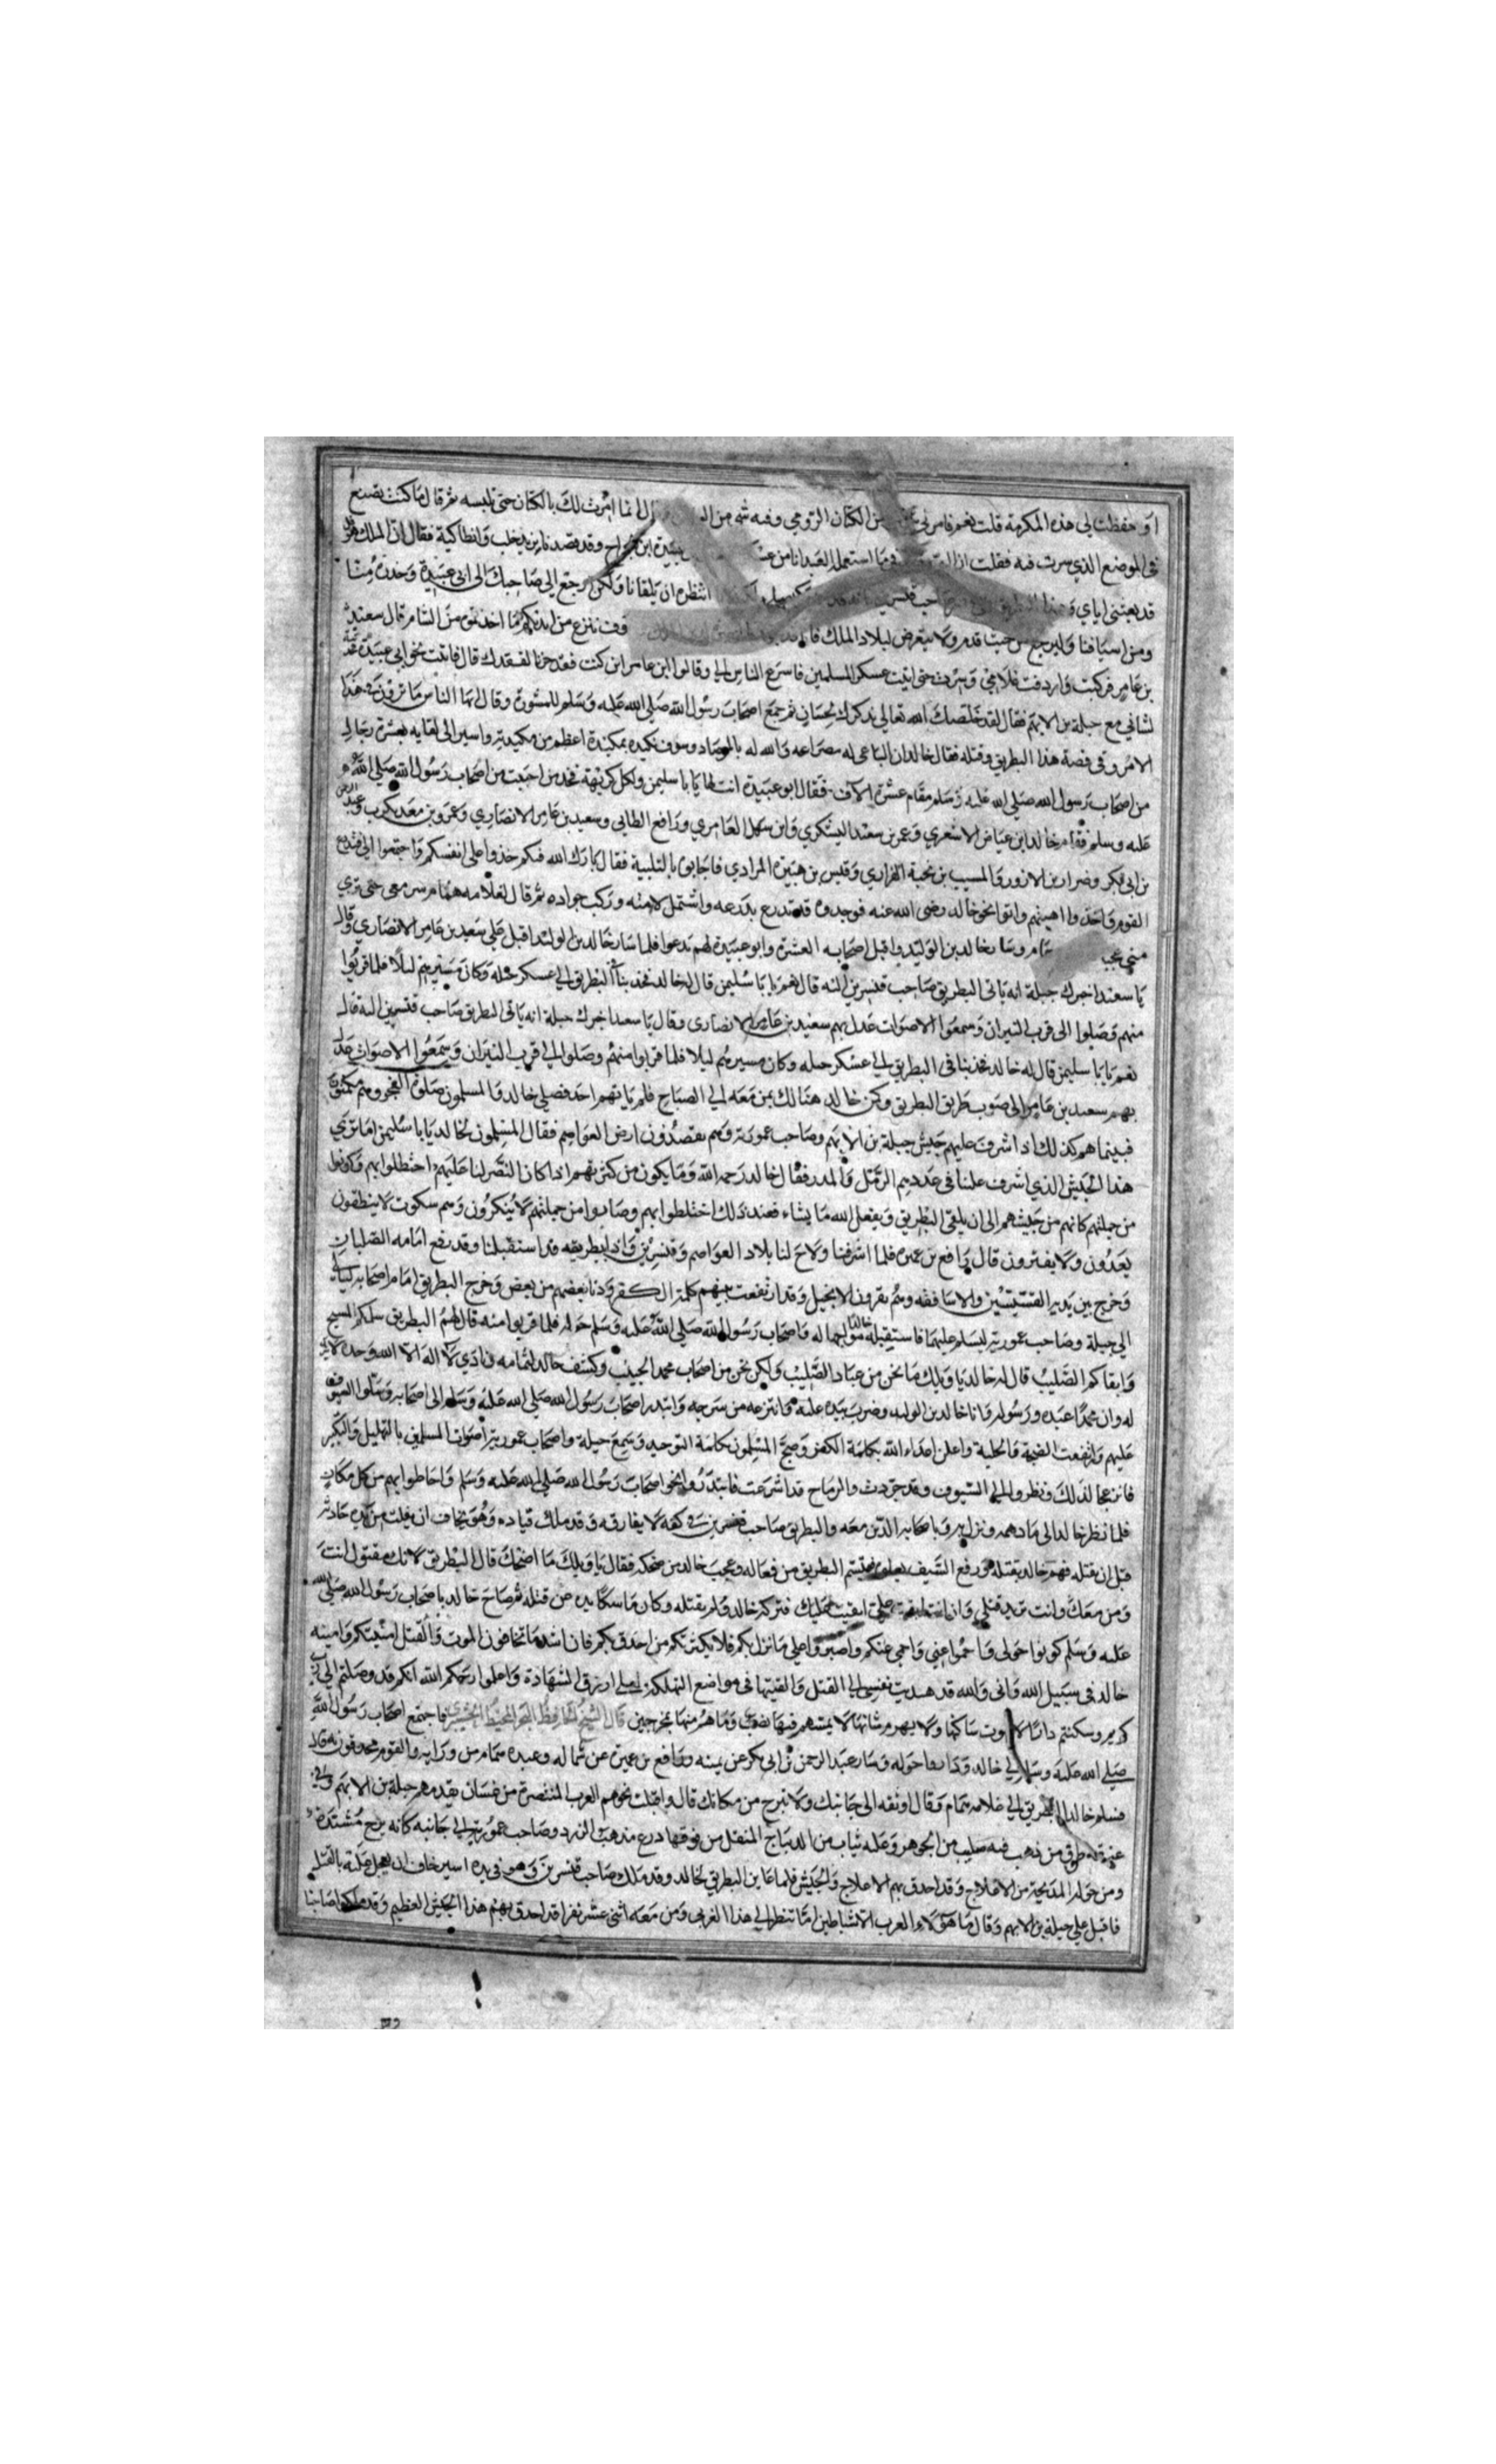 او حفظت لي هذه المكرمة قلت نعم فامر لي من الكتان الرومي وفيه شي من انما امرت لك بالكتان حتى تلبسه ثم قال ما كنت تصنع
في الموضع الذي سرت فيه فقلت استعمل العبد انا من عبيدة ابن الجراح وقد قصدنا نريد حلب وانطاكية فقال ان الملك هرقل
قد بعثني اياي صاحب قنسرين انتظره ان يلقانا ولكن ارجع الى صاحبك الى ابي عبيدة وحذره منا
ومن اسيافنا وليرجع من حيث قدم ولا يتعرض لبلاد الملك ننزع من ايديكم ما اخذتموه من الشام قال سعيد
بن عامر فركبت واردفت غلامي وسرت حتى اتيت عسكر المسلمين فاسرع الناس الي وقالوا ابن عامر اين كنت فقد حزنا لفقدك قال فاتيت نحو ابي عبيدة
لشاني مع جبلة بن الايهم فقال لقد خلصك الله تعالى بذكرك لحسان ثم جمع اصحاب رسول الله صلى الله عليه وسلم للمشورة وقال ايها الناس ما ترون في هذا
الامر وفي قصة هذا البطريق وقتله فقال خالد ان الباغي له مصراعه والله له بالمرصاد وسوف نكيده بمكيدة اعظم من مكيدته واسير الى لقايه بعشرة رجال
من اصحاب رسول الله صلى الله عليه وسلم مقام عشرة الاف فقال ابو عبيدة انت لها يا با سليمن ولكل كريهة فخذ من احببت من اصحاب رسول الله صلى الله
عليه وسلم فقام خالد ابن عياض الاشعري وعمر بن سعد اليشكري وابن سهل العامري ورافع الطايي وسعيد بن عامر الانصاري وعمرو بن معد يكرب وعبد الرحمن
بن ابي بكر وضرار بن الازور والمسيب بن نجبة الفزاري وقيس بن هبيرة المرادي فاجابوه بالتلبية فقال بارك الله فيكم خذوا على انفسكم واجتمعوا
القوم واخذوا اهبتهم واتوا نحو خالد رضي الله عنه فوجدوه قد تدرع بدرعه واشتمل لامته وركب جواده ثم قال لغلامه همام سر معي حتى ترى
مني عجبا وسار خالد بن الوليد واقبل اصحابه العشرة وابو عبيدة لهم يدعوا فلما سار خالد بن الوليد اقبل على سعيد بن عامر الانصاري وقال
يا سعيد اخبرك جبلة انه ياتي البطريق صاحب قنسرين اليه قال نعم يا با سليمن قال له خالد فخذ بنا في البطريق الى عسكر جبلة وكان مسيرهم ليلا فلما قربوا
منهم وصلوا الى قرب النيران وسمعوا الاصوات عدل بهم سعيد بن عامر الانصاري وقال يا سعد اخبرك جبلة انه ياتي البطريق صاحب قنسرين اليه قال
نعم يا با سليمن قال له خالد فخذ بنا في البطريق الى عسكر جبله وكان مسيرهم ليلا فلما قربوا منهم وصلوا الى قرب النيران وسمعوا الاصوات عدل
بهم سعيد بن عامر الى صوب طريق البطريق وكمن خالد هنالك بمن معه الى الصباح فلم ياتهم احد فصلى خالد والمسلمون صلوة الفجر وهم
فبينما هم كذلك اذ اشرف عليهم جيش جبلة بن الايهم وصاحب عمورية وهم يقصدون ارض العواصم فقال المسلمون لخالد يا با سليمن اما ترى
هذا الجيش الذي اشرف علينا في عدد يم الرمل والمدر فقال خالد رحمه الله وما يكون من كثرتهم اذا كان النصر لنا عليهم اختلطوا بهم وكونوا
من جملتهم كانهم من جيشهم الى ان يلقى البطريق ويفعل الله ما يشاء فعند ذلك اختلطوا بهم وصاروا من جملتهم لا ينكرون وهم سكوت لا ينطقون
يعدون ولا يفترون قال رافع بن عميره فلما اشرفنا ولاح لنا بلاد العواصم وقنسرين واذا ببطريقه قد استقبلنا وقد رفع امامه الصلبان
وخرج بين يديه القسيسين والاساقفه وهم يقرون الانجيل وقد ارتفعت بينهم كلمة الكفر ودنا بعضهم من بعض وخرج البطريق امام اصحابه
الى جبلة وصاحب عمورية ليسلم عليهما فاستقبله خالد واصحاب رسول الله صلى الله عليه وسلم حوله فلما قربوا منه قال لهم البطريق سلمكم المسيح
وابقاكم الصليب قال له خالد يا ويلك ما نحن من عباد الصليب ولكن نحن من اصحاب محمد الحبيب وكشف خالد لثامه ونادى لا اله الا الله وحده لا شريك
له وان محمدا عبده ورسوله وانا خالد بن الوليد وضرب بيده عليه وانتزعه من سرجه وابتدر اصحاب رسول الله صلى الله عليه وسلم الى اصحابه وسلوا السيوف
عليهم وارتفعت الضجة والجلبة واعلن اعداء الله بكلمة الكفر وضج المسلمون بكلمة التوحيد وسمع جبلة واصحاب عمورية اصوات المسلمين بالتهليل والتكبير
فانزعجا لذلك ونظروا الى السيوف وقد جردت والرماح قد اشرعت فابتدروا نحو اصحاب رسول الله صلى الله عليه وسلم واحاطوا بهم من كل مكان
فلما نظر خالد الى ما دهمه ونزل به وباصحابه الذين معه والبطريق صاحب قنسرين في كفه لا يفارقه وقد ملك قياده وهو يخاف ان يفلت من يده
قبل ان يقتله فهم خالد بقتله ورفع السيف فتبسم البطريق من فعاله وعجب خالد من ضحكه فقال يا ويلك ما اضحكك قال البطريق لانك مقتول انت
ومن معك وانت تريد قتلي وان انت ابقيت عليك فتركه خالد ولم يقتله وكان ماسكا يده عن قتله ثم صاح خالد يا اصحاب رسول الله صلى الله
عليه وسلم كونوا حولي واحموا عني واحمي عنكم واصبروا على ما نزل بكم فلا يكترثكم من احدق بكم فان اشد ما تخافون الموت والقتل امنيتكم وامنيه
خالد في سبيل الله واني والله قد هديت نفسي الى القتل والقيتها في مواضع التهلكة لعلي ارزق الشهادة واعلموا رحمكم الله انكم قد وصلتم الى رب
كريم وسكنتم دارا لا يموت ساكنها ولا يهرم شانها لا يمسهم فيها نصب وما هم منها بمخرجين قال الشيخ الحافظ فاجتمع اصحاب رسول الله
صلى الله عليه وسلم الى خالد وداروا حوله وسار عبد الرحمن بن ابي بكر عن يمينه ورافع بن عميرة عن شماله وعبده همام من ورايه والقوم محدقون به قال
فسلم خالد البطريق الى غلامه همام وقال اوثقه الى جانبك ولا تبرح من مكانك قال واقبلت نحوهم العرب المتنصرة من غسان يقدمهم جبلة بن الايهم وفي
عنقه طوق من ذهب فيه صليب من الجوهر وعليه ثياب من الديباج المثقل من فوقها درع مذهب الزرد وصاحب عمورية الى جانبه كانه برج مشيد
ومن حوله المذبحة من الاعلاج وقد احدق بهم الاعلاج والجيش فلما عاين البطريق لخالد وقد ملك صاحب قنسرين وهو في يده اسير خاف ان يعجل عليه بالقتل
فاقبل على جبلة بن الايهم وقال ما هؤلاء العرب الا شياطين اما تنظر الى هذا العربي ومن معه اثنى عشر نفرا قد احدق بهم هذا الجيش العظيم وقد ملكوا صاحبنا